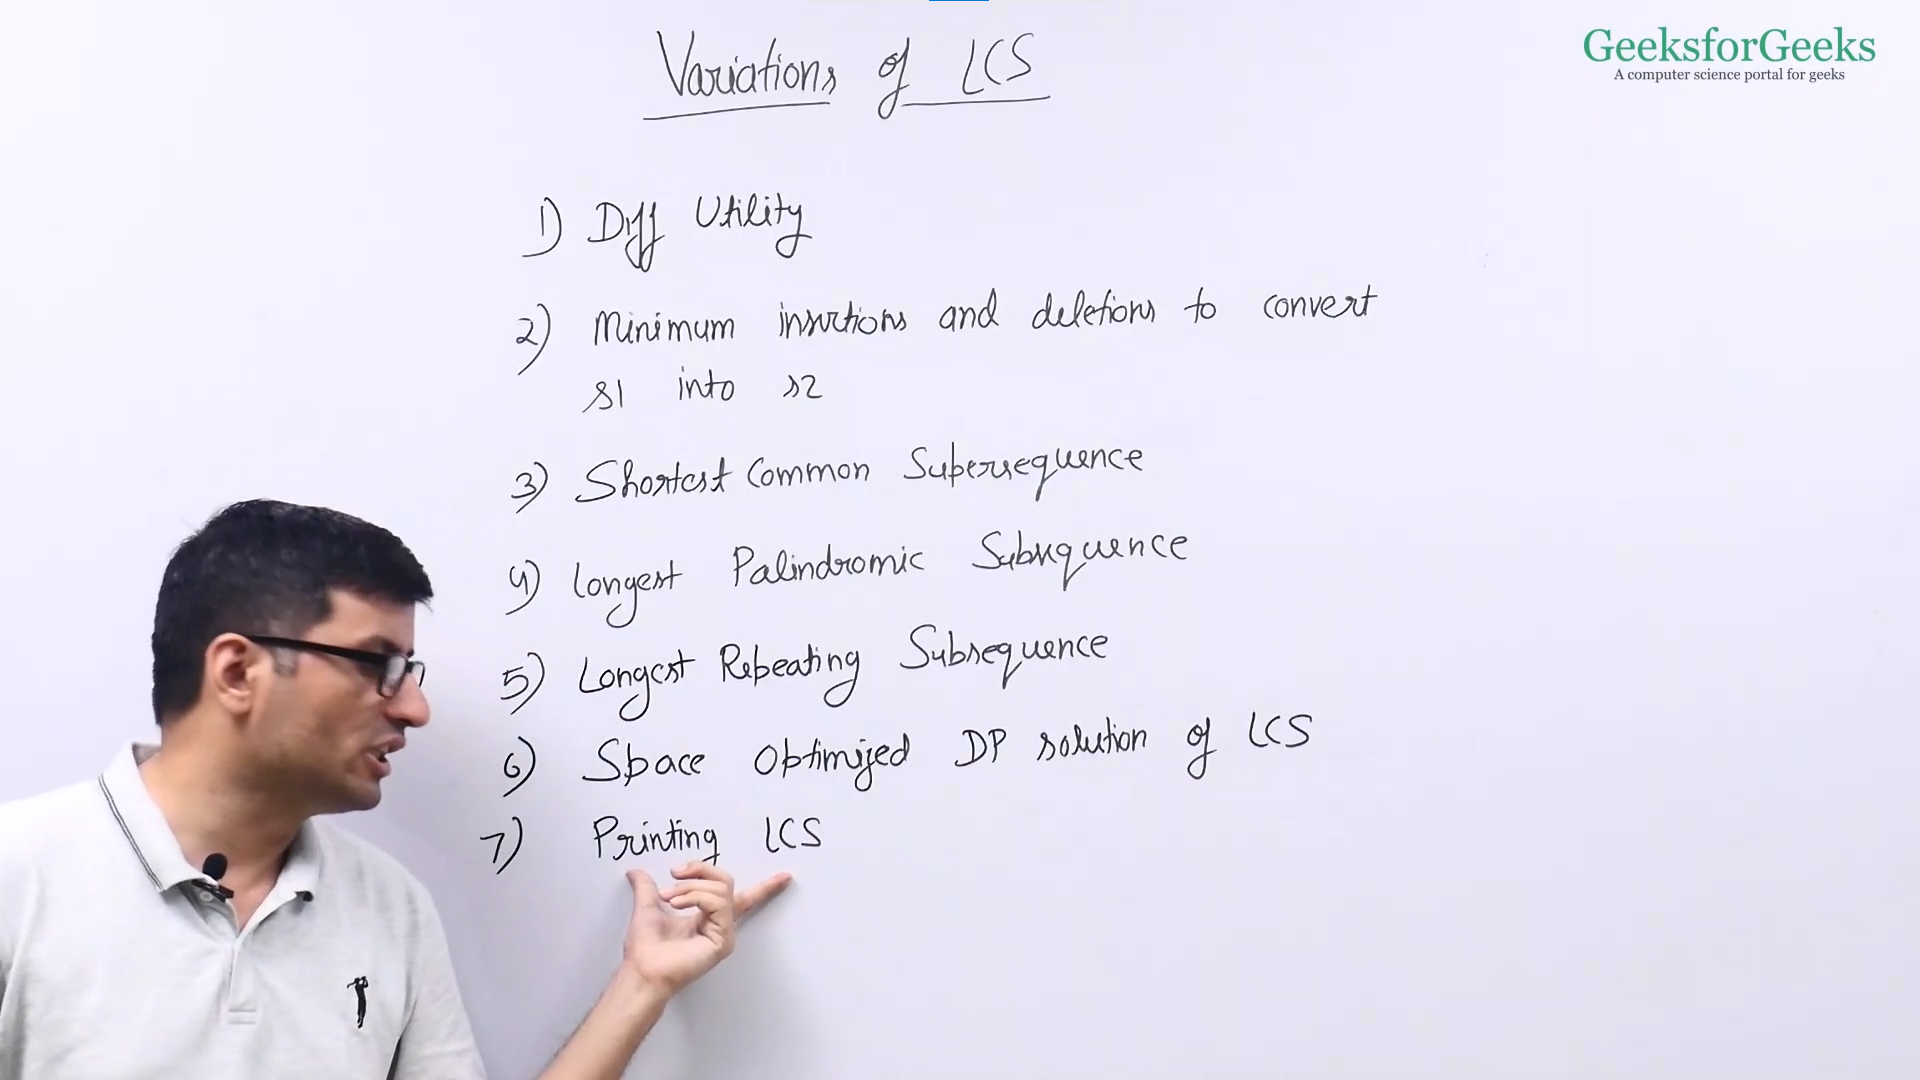 GeeksforGeeks
A computer science portal for geeks
Variations of LCS
1) Diff Utility
2) Minimum insertions and deletions to convert
s1 into s2
3) Shortest Common Supersequence
4) Longest Palindromic Subsequence
5) Longest Repeating Subsequence
6) Space Optimized DP solution of LCS
7) Printing LCS